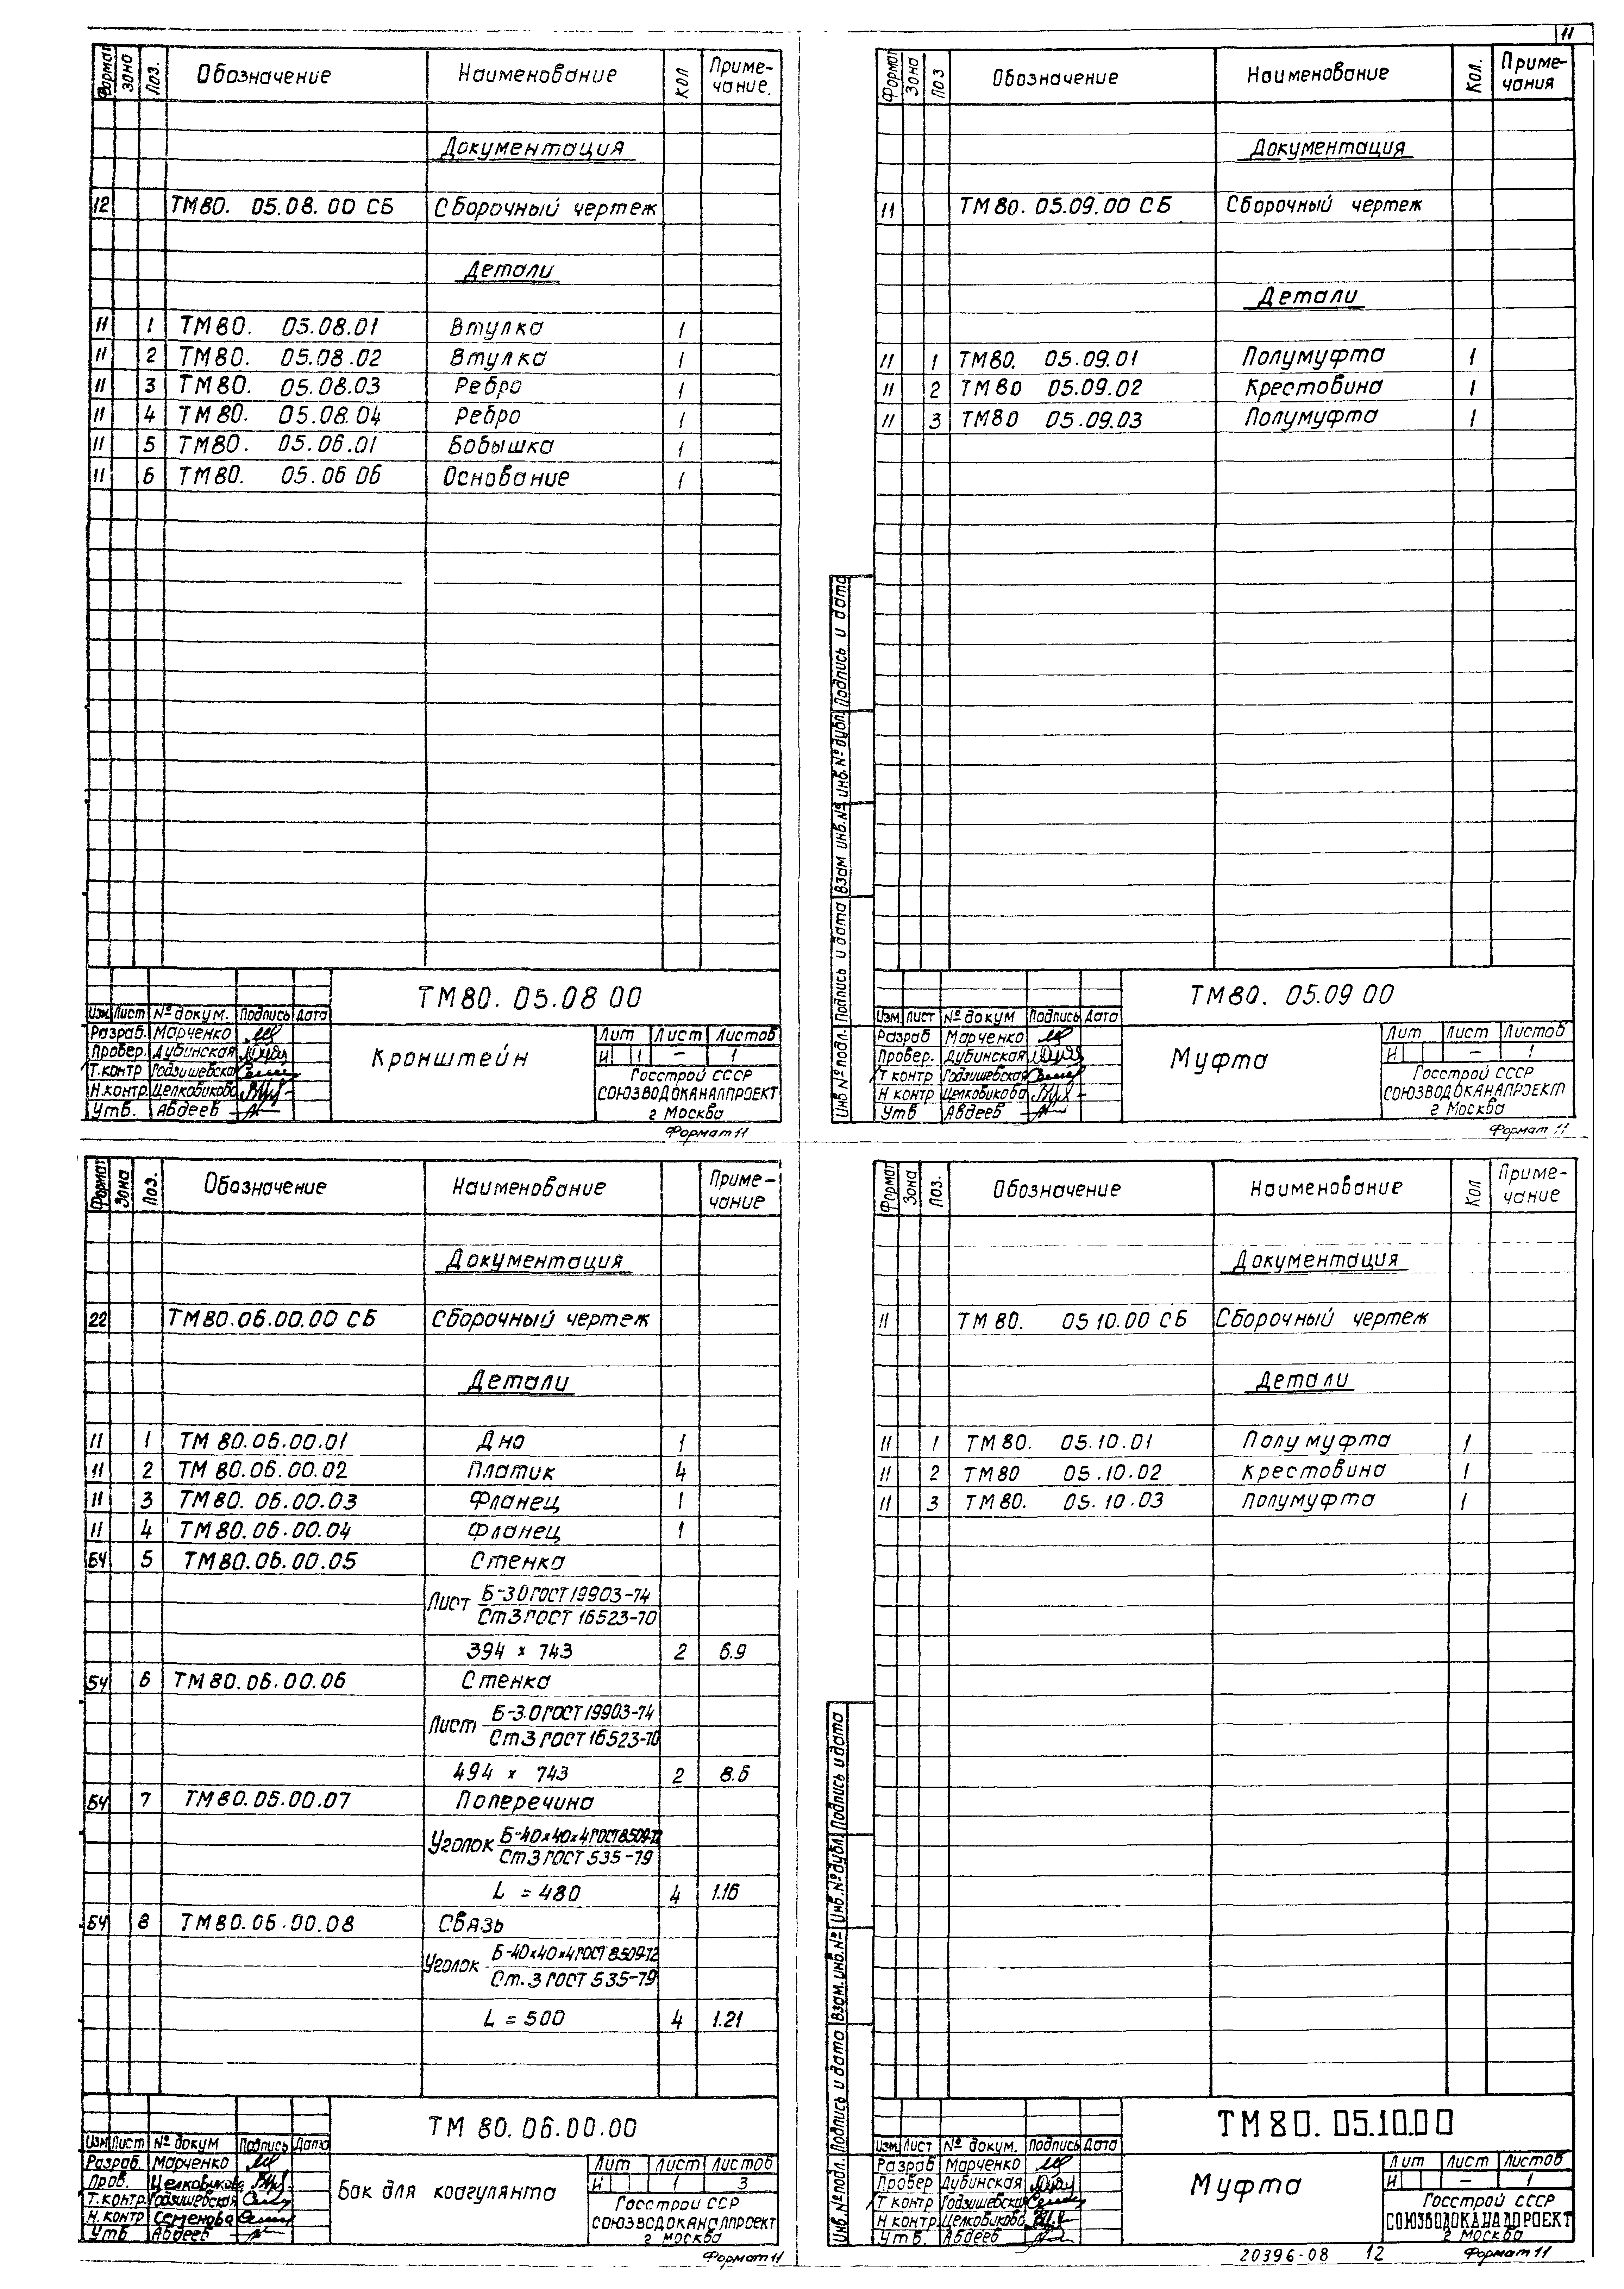 11
Формат Зона Поз. Обозначение Наименование Кол Приме-
чание.
Документация
12 ТМ80. 05.08.00 СБ Сборочный чертеж
Детали
11 1 ТМ80. 05.08.01 Втулка 1
11 2 ТМ80. 05.08.02 Втулка 1
11 3 ТМ80. 05.08.03 Ребро 1
11 4 ТМ80. 05.08.04 Ребро 1
11 5 ТМ80. 05.06.01 Бобышка 1
11 6 ТМ80. 05.06 06 Основание 1
ТМ80. 05.08 00
Изм. Лист № докум. Подпись Дата
Разраб. Марченко
Провер. Дубинская
Т.контр Годзишевская
Н.контр. Целковикова
Утв. Авдеев
Кронштейн
Лит Лист Листов
И 1 – 1
Госстрой СССР
СОЮЗВОДОКАНАЛПРОЕКТ
г Москва
Формат 11
Формат Зона Поз Обозначение Наименование Кол. Приме-
чания
Документация
11 ТМ80. 05.09.00 СБ Сборочный чертеж
Детали
11 1 ТМ80. 05.09.01 Полумуфта 1
11 2 ТМ80 05.09.02 Крестовина 1
11 3 ТМ80 05.09.03 Полумуфта 1
Инв № подл. Подпись и дата Взам инв.№ Инв.№ дубл. Подпись и дата
ТМ80. 05.09 00
Изм. Лист № докум Подпись Дата
Разраб Марченко
Провер. Дубинская
Т контр Годзишевская
Н контр Целковикова
Утв Авдеев
Муфта
Лит Лист Листов
И – 1
Госстрой СССР
СОЮЗВОДОКАНАЛПРОЕКТ
г Москва
Формат 11
Формат Зона Поз. Обозначение Наименование Приме-
чание
Документация
22 ТМ80.06.00.00 СБ Сборочный чертеж
Детали
11 1 ТМ 80.06.00.01 Дно 1
11 2 ТМ 80.06.00.02 Платик 4
11 3 ТМ80. 06.00.03 Фланец 1
11 4 ТМ80.06.00.04 Фланец 1
БЧ 5 ТМ80.06.00.05 Стенка
Лист Б-3.0 ГОСТ 19903-74
Ст3 ГОСТ 16523-70
394 × 743 2 6.9
БЧ 6 ТМ80.06.00.06 Стенка
Лист Б-3.0 ГОСТ 19903-74
Ст3 ГОСТ 16523-70
494 × 743 2 8.6
БЧ 7 ТМ80.06.00.07 Поперечина
Уголок Б-40×40×4 ГОСТ 8509-72
Ст3 ГОСТ 535-79
L = 480 4 1.16
БЧ 8 ТМ80.06.00.08 Связь
Уголок Б-40×40×4 ГОСТ 8509-72
Ст. 3 ГОСТ 535-79
L = 500 4 1.21
ТМ 80.06.00.00
Изм Лист № докум Подпись Дата
Разраб. Марченко
Пров. Целковикова
Т.контр. Годзишевская
Н.контр Семенова
Утв Авдеев
Бак для коагулянта
Лит Лист Листов
И 1 3
Госстрой ССР
СОЮЗВОДОКАНАЛПРОЕКТ
г Москва
Формат 11
Формат Зона Поз. Обозначение Наименование Кол Приме-
чание
Документация
11 ТМ 80. 05 10.00 СБ Сборочный чертеж
Детали
11 1 ТМ 80. 05.10.01 Полумуфта 1
11 2 ТМ80 05.10.02 Крестовина 1
11 3 ТМ 80. 05.10.03 Полумуфта 1
Инв.№ подл. Подпись и дата Взам.инв.№ Инв.№ дубл. Подпись и дата
ТМ80. 05.10.00
Изм. Лист № докум. Подпись Дата
Разраб Марченко
Провер Дубинская
Т контр Годзишевская
Н контр. Целковикова
Утв. Авдеев
Муфта
Лит Лист Листов
И – 1
Госстрой СССР
СОЮЗВОДОКАНАЛПРОЕКТ
г Москва
20396-08 12 Формат 11